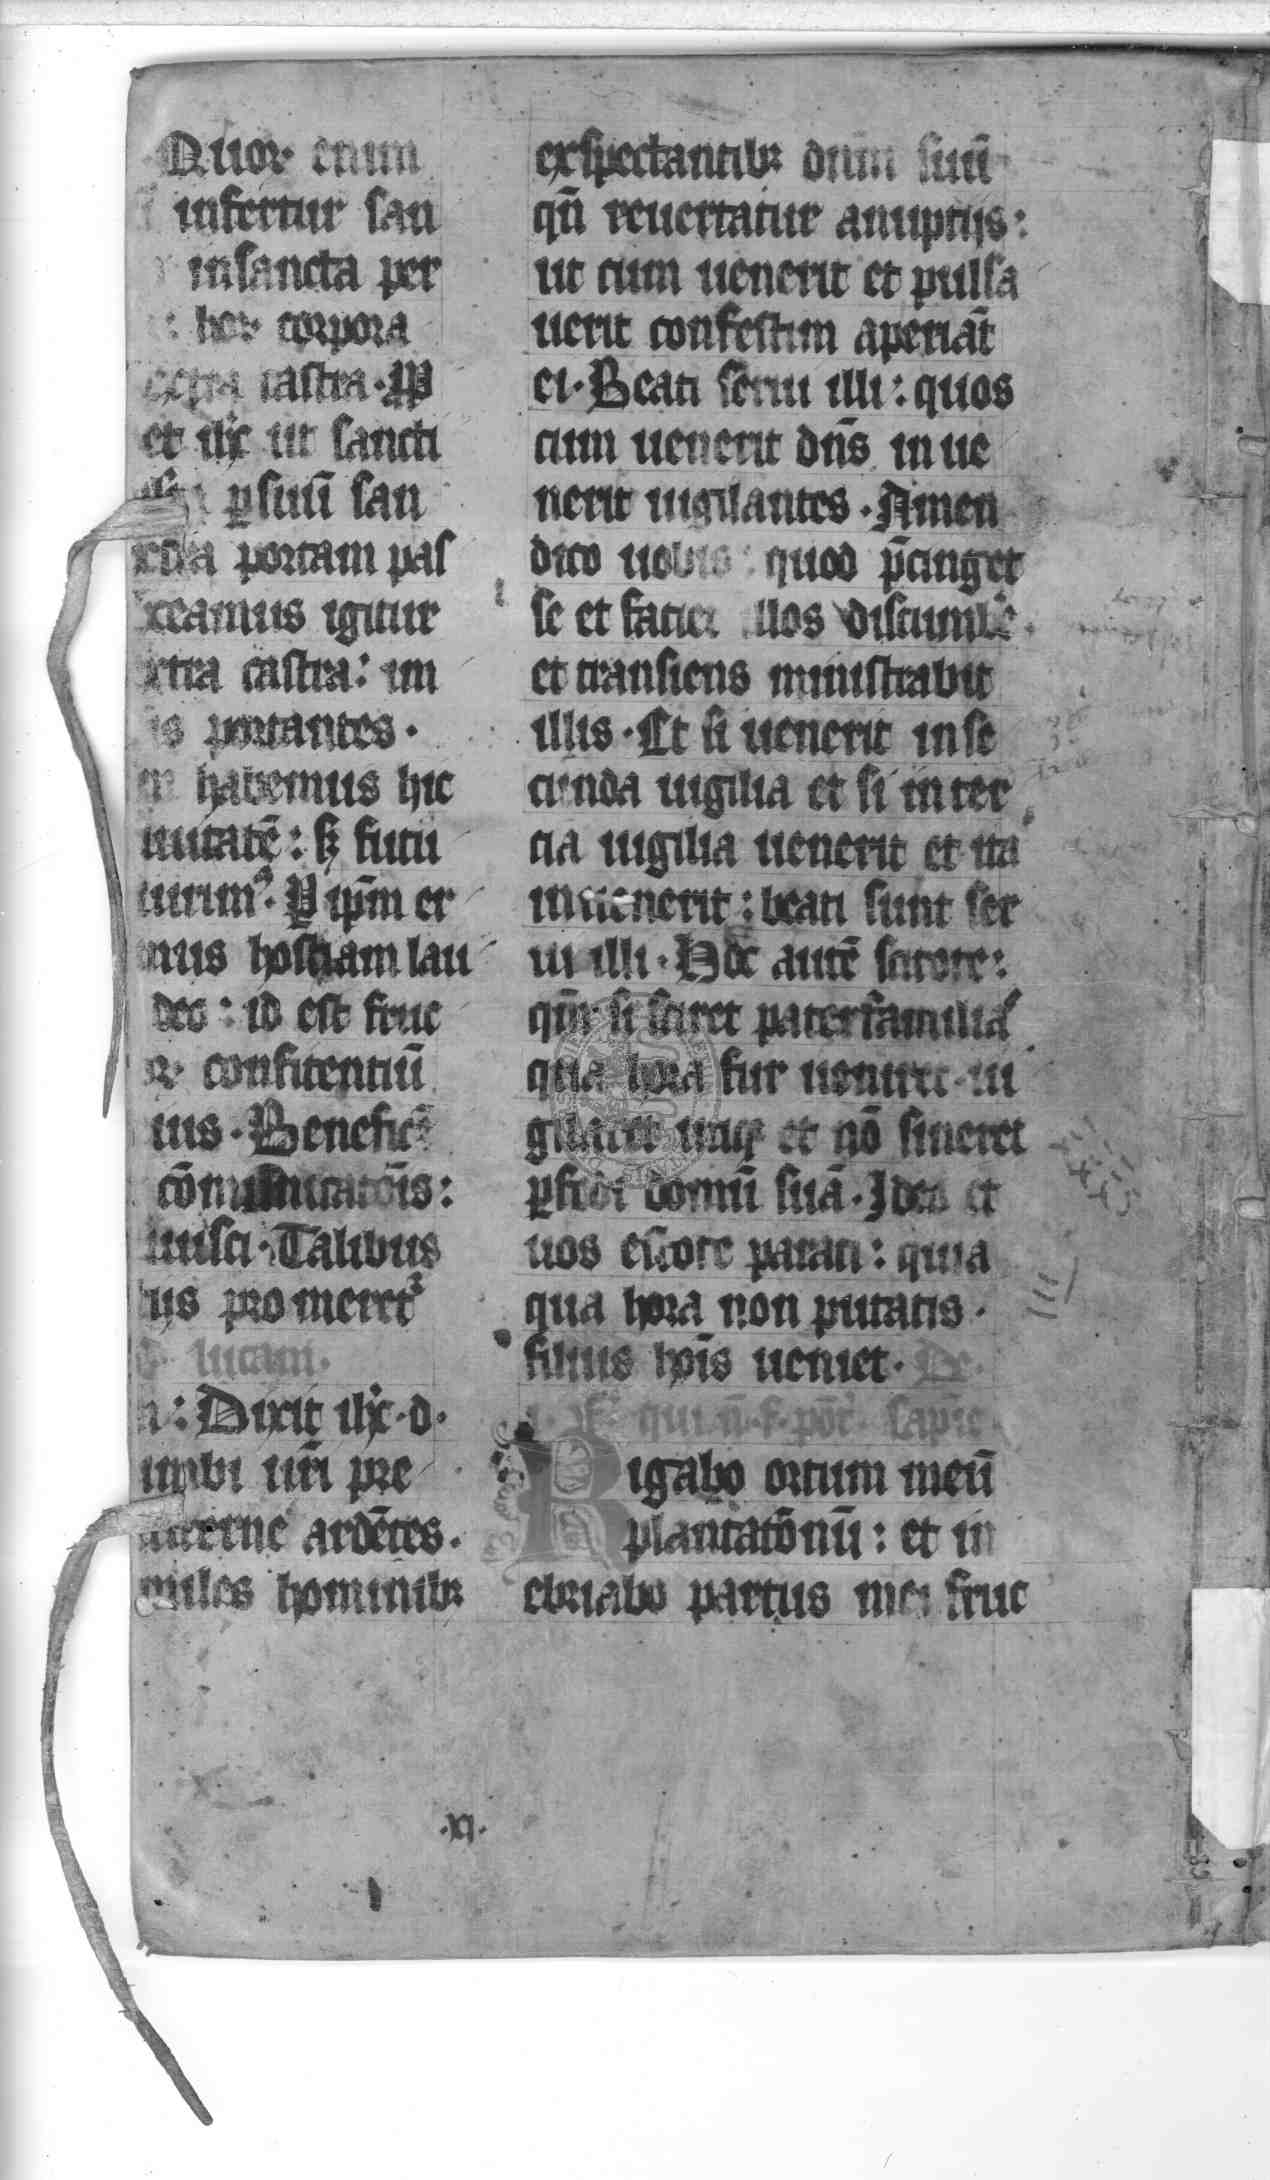 Quoꝝ enim
infertur san
insancta per
hoꝝ corpora
extra castra · ꝓp
et ihc̄ ut sancti
ꝑ suū san
extra portam pas
exeamus igitur
extra castra : im
is portantes ·
habemus hic
uitatē : sꝫ futu
quirimꝰ · ꝑ ip̄m er
mus hostiam lau
deo : id est fruc
oꝝ confitentiū
ius · Benefic
cōmunicatōis :
iuisci · Talibus
ijs promeret᷑
lucam ·
Dixit ihc̄ · d ·
lumbi ur̄i pre
lucerne ardētes ·
similes hominibꝫ
exspectantibꝫ dn̄m suū
qn̄ reuertatur anuptijs :
ut cum uenerit et pulsa
uerit confestim aperiāt
ei · Beati serui illi : quos
cum uenerit dn̄s inue
nerit uigilantes · Amen
dico uobis : quod p̄cinget
se et faciet illos discumbē ·
et transiens ministrabit
illis · Et si uenerit inse
cunda uigilia et si in ter
cia uigilia uenerit et ita
inuenerit : beati sunt ser
ui illi · Hoc autē scitote :
qm̄ si sciret paterfamilias
qua hora fur ueniret · ui
gilaret utiqꝫ et nō sineret
ꝑfodi domū suā · Ideo et
uos estote parati : quia
qua hora non putatis ·
filius hōis ueniet · De
qui n̄ · f · pōt sapīe
Rigabo ortum meū
plantatōnū : et in
ebriabo partus mei fruc
· xj ·